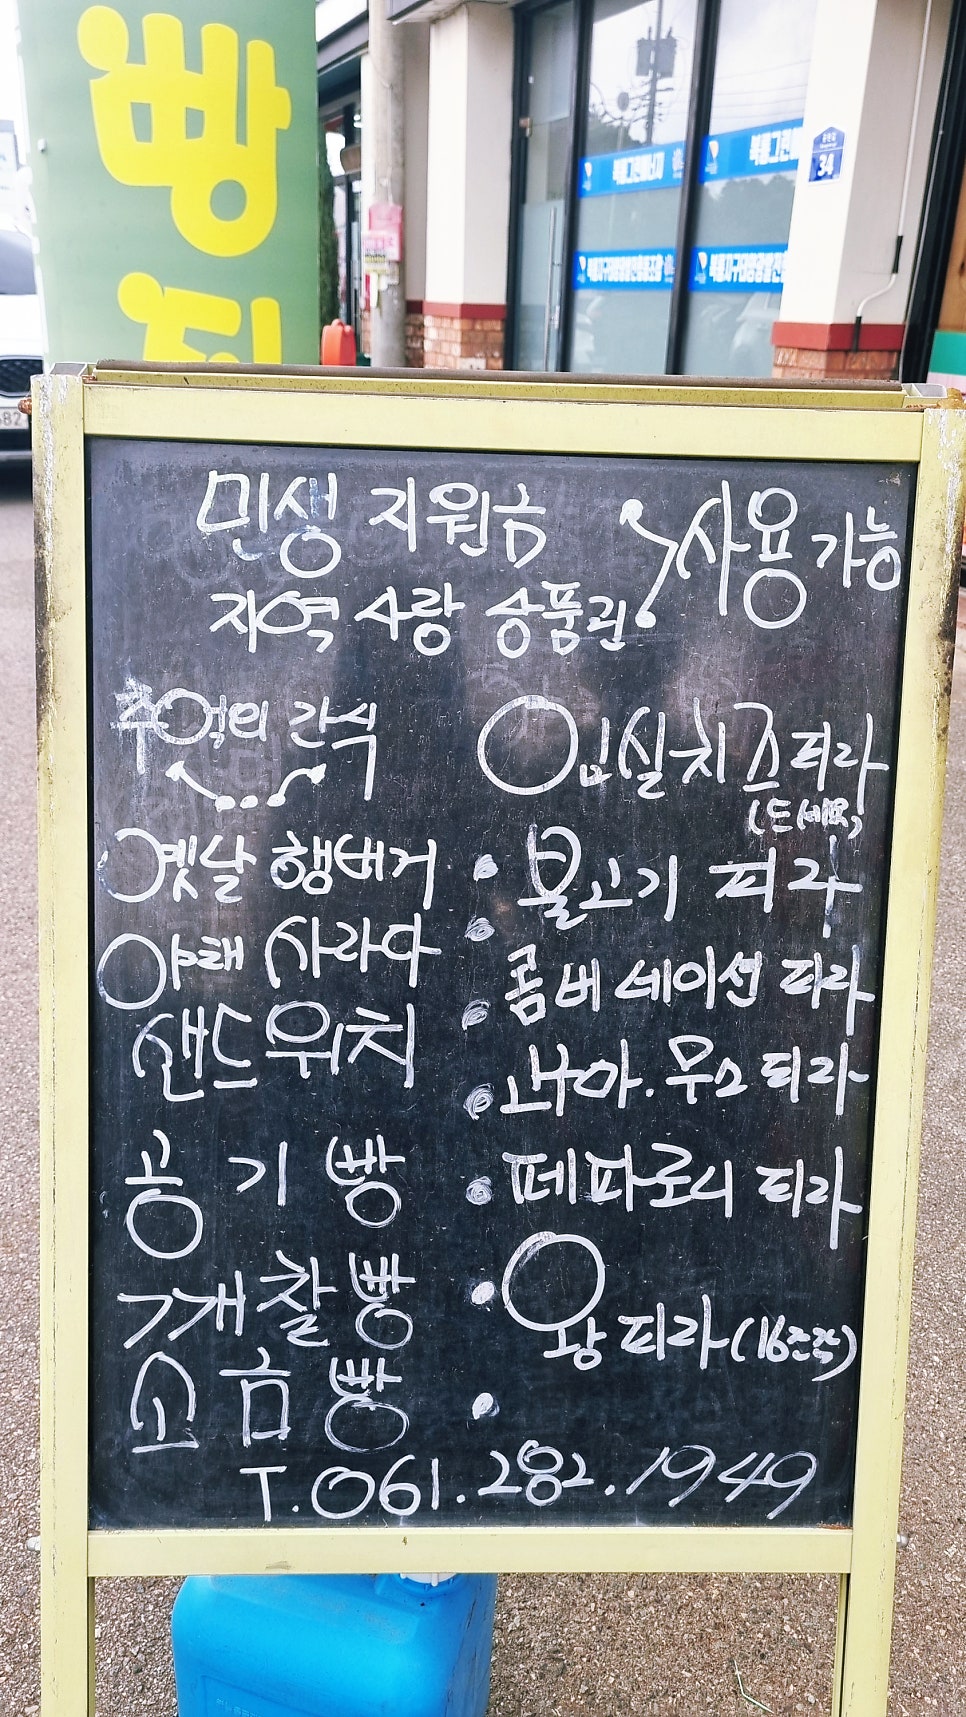 빵
민생 지원금
지역 사랑 상품권
사용 가능
추억의 간식
옛날 햄버거
야채 사라다
샌드위치
공기빵
깨찰빵
소금빵
임실치즈피자
불고기 피자
콤비네이션 피자
고구마.무스피자
페파로니 피자
왕피자(16조각)
T.061.282.1949
34